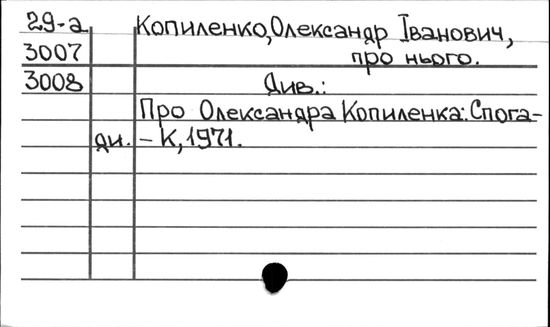 29-а Копиленко, Олександр Іванович,
3007 про нього.
3008 Див.:
Про Олександра Копиленка: Спога-
ди. – К, 1971.